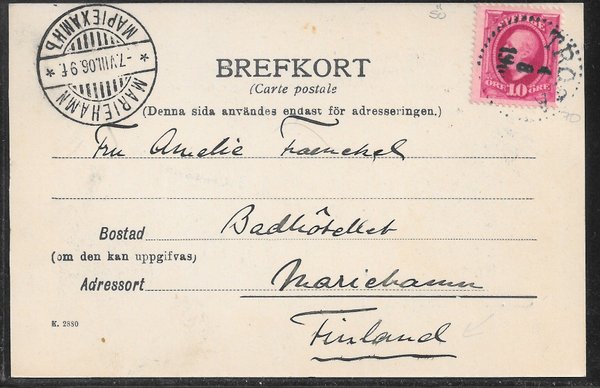 50
МАРІЕХАМНЪ
* -7.VIII.06.9 f. *
MARIEHAMN
BREFKORT
(Carte postale)
(Denna sida användes endast för adresseringen.)
ÖRE 10 ÖRE
8
Fru Amelie Fraenckel
Bostad Badhôtellet
(om den kan uppgifvas)
Adressort Mariehamn
K. 2880
Finland